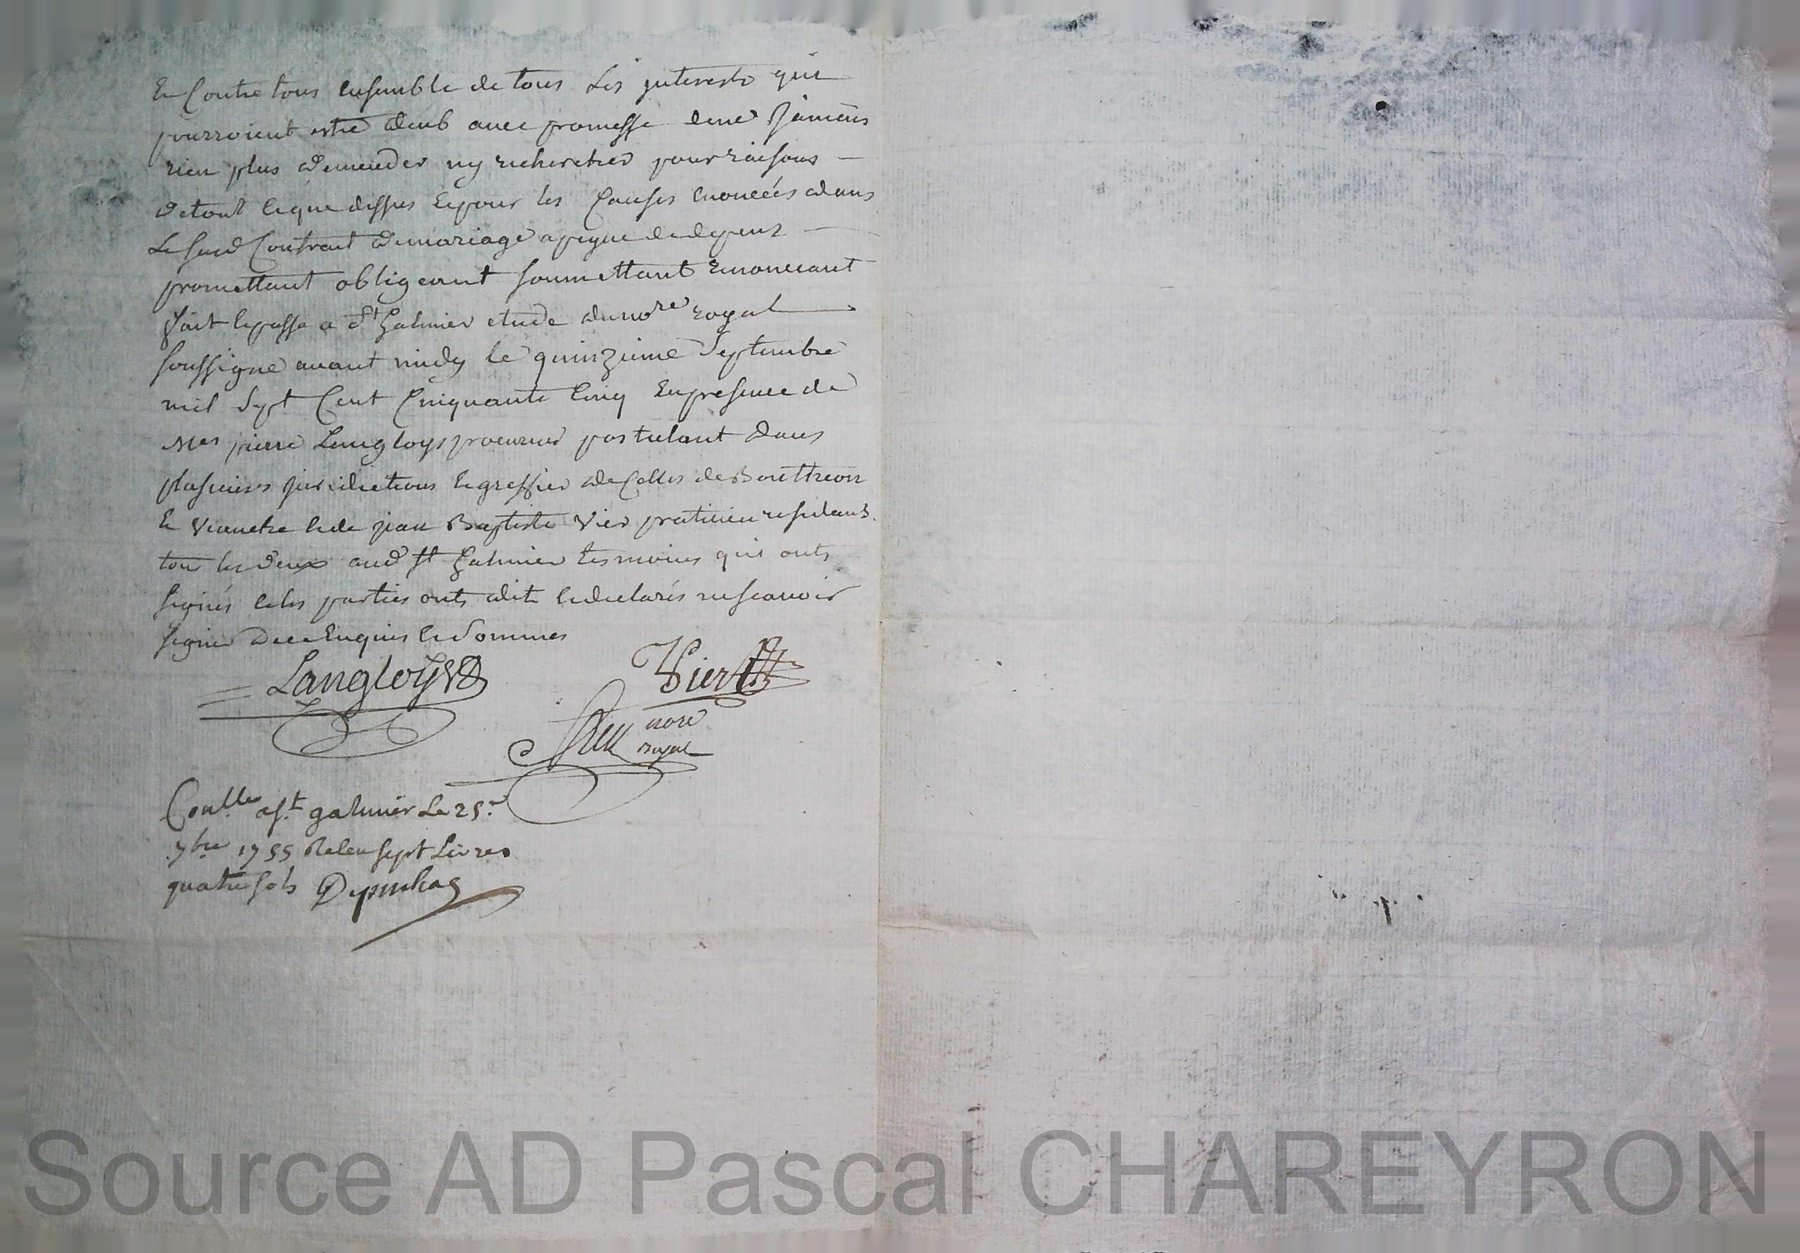 et contre tous ensemble de tous les interests qui
pourroient estre deub avec promesse de ne Jamais
rien plus demender ny rechercher pour raisons
de tout ce que dessus et pour les causes enoncées dans
le susd contract de mariage a peyne de depens
promettant obligeant soumettant renoncant
fait et passé a St Galmier etude du nore royal
soussigné avant midy le quinzieme Septembre
mil Sept Cent Cinquante Cinq en presence de
Mes pierre Langloys procureur postulant dans
plusieurs juridictions et greffier de celles de Bouttheon
et Veauche et de jean Baptiste Vier praticien residants
tou les deux aud St Galmier tesmoins qui onts
signés et les parties onts dit et declarés ne scavoir
signer de ce enquis et sommes
Langloys
Vier
nore
Royal
Conllé a St galmier Le 25e
7bre 1755 Reçu sept Livres
quatre sols
Source AD Pascal CHAREYRON